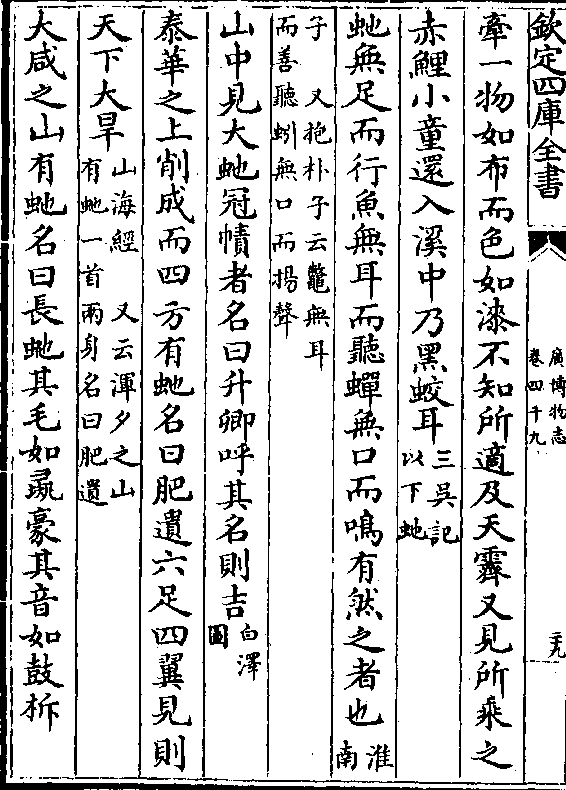 欽定四庫全書
廣博物志
卷四十九
三九
牽一物如布而色如漆不知所適及天霽又見所乘之
赤鯉小童還入溪中乃黑蛟耳三吳記
以下虵
虵無足而行魚無耳而聽蟬無口而鳴有然之者也淮
南
子　又抱朴子云鼈無耳
而善聽蚓無口而揚聲
山中見大虵冠幘者名曰升卿呼其名則吉白澤
圖
泰華之上削成而四方有虵名曰肥遺六足四翼見則
天下大旱山海經　又云渾夕之山
有虵一首兩身名曰肥遺
大咸之山有虵名曰長虵其毛如彘豪其音如鼓柝